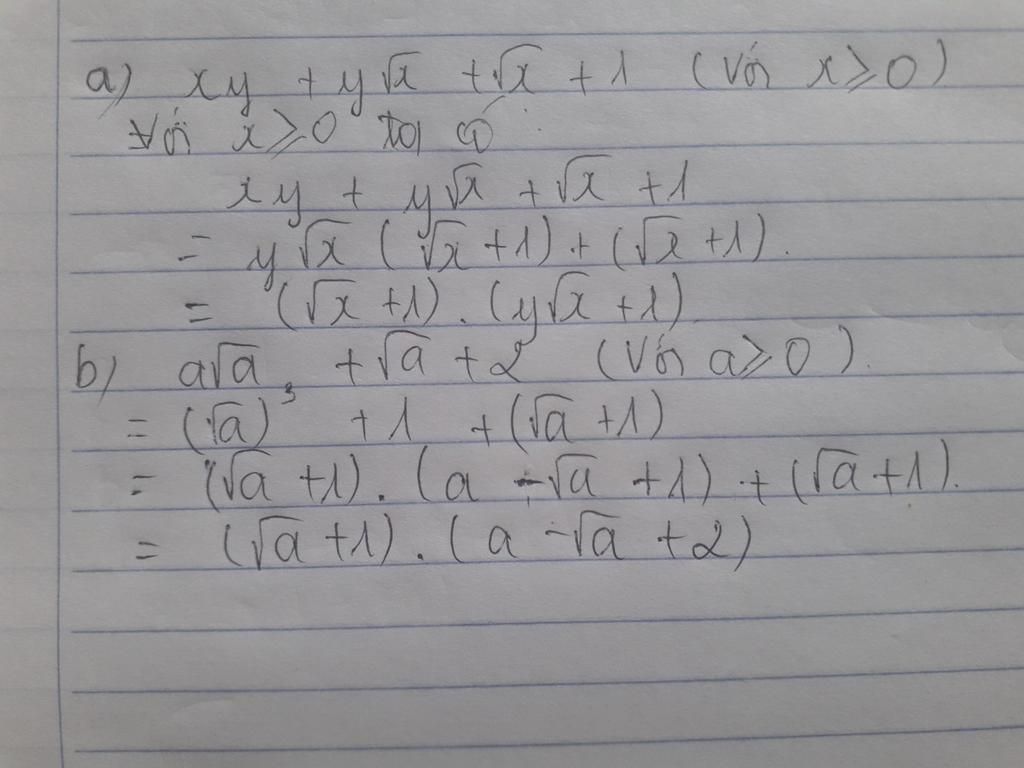 a) xy + y√x + √x + 1 (Với x ≥ 0)
Với x ≥ 0 ta có :
xy + y√x + √x + 1
= y√x (√x + 1) + (√x + 1).
= (√x + 1) . (y√x + 1)
b) a√a + √a + 2 (Với a ≥ 0).
= (√a)³ + 1 + (√a + 1)
= (√a + 1) . (a - √a + 1) + (√a + 1).
= (√a + 1) . (a - √a + 2)